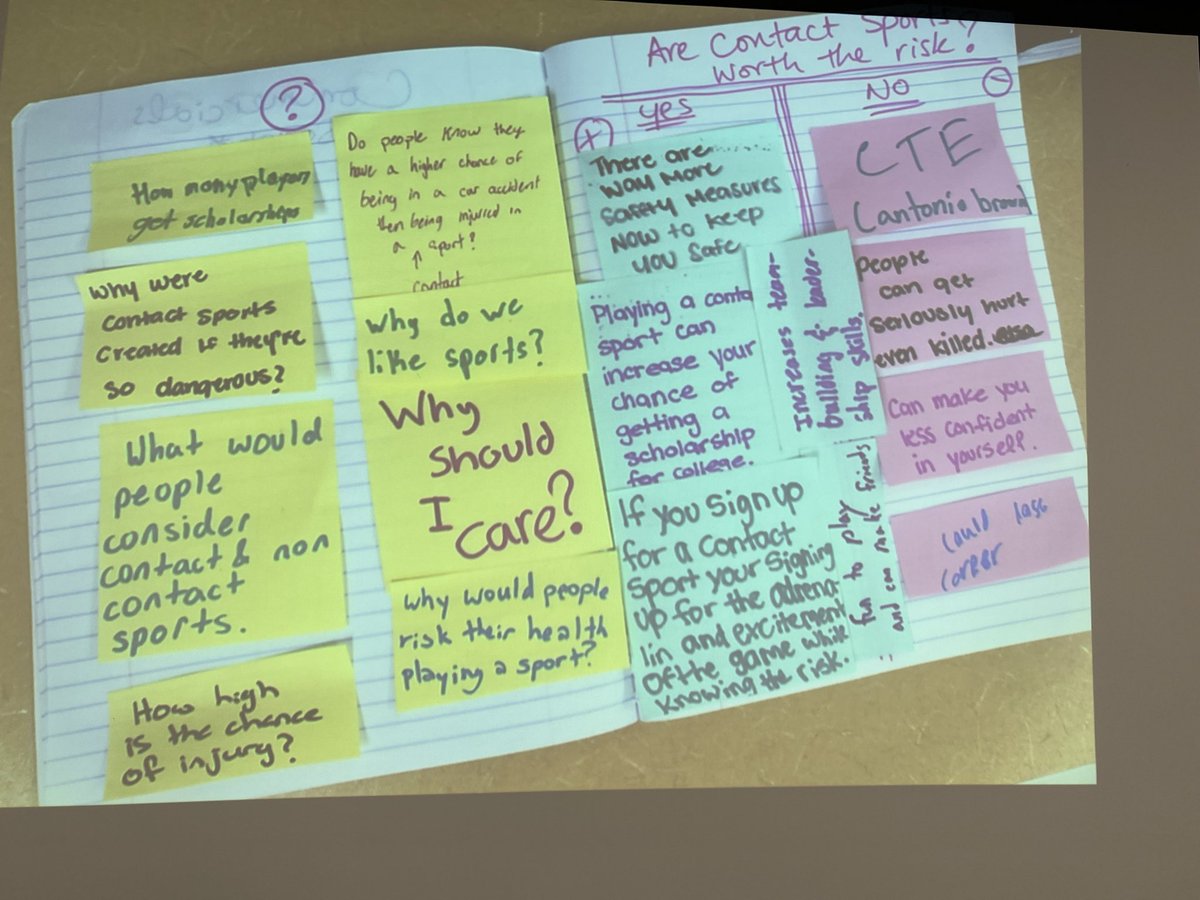 ?
How many players
get scholarships
Why were
contact sports
created if they're
so dangerous?
What would
people
consider
contact & non
contact
sports.
How high
is the chance
of injury?
Do people know they
have a higher chance of
being in a car accident
then being injured in
a ↑ sport?
contact
Why do we
like sports?
Why
should
I care?
why would people
risk their health
playing a sport?
Are Contact Sports
worth the risk?
+
yes
There are
way more
safety measures
now to keep
you safe
Playing a conta
sport can
increase your
chance of
getting a
scholarship
for college.
Increases team-
building & leader-
ship skills.
If you sign up
for a contact
sport your signing
up for the adrena-
lin and excitement
of the game while
knowing the risk.
fun to play
and can make friends
NO
-
CTE
(antonio brown
People
can get
seriously hurt
even killed.
Can make you
less confident
in yourself.
could loss
career